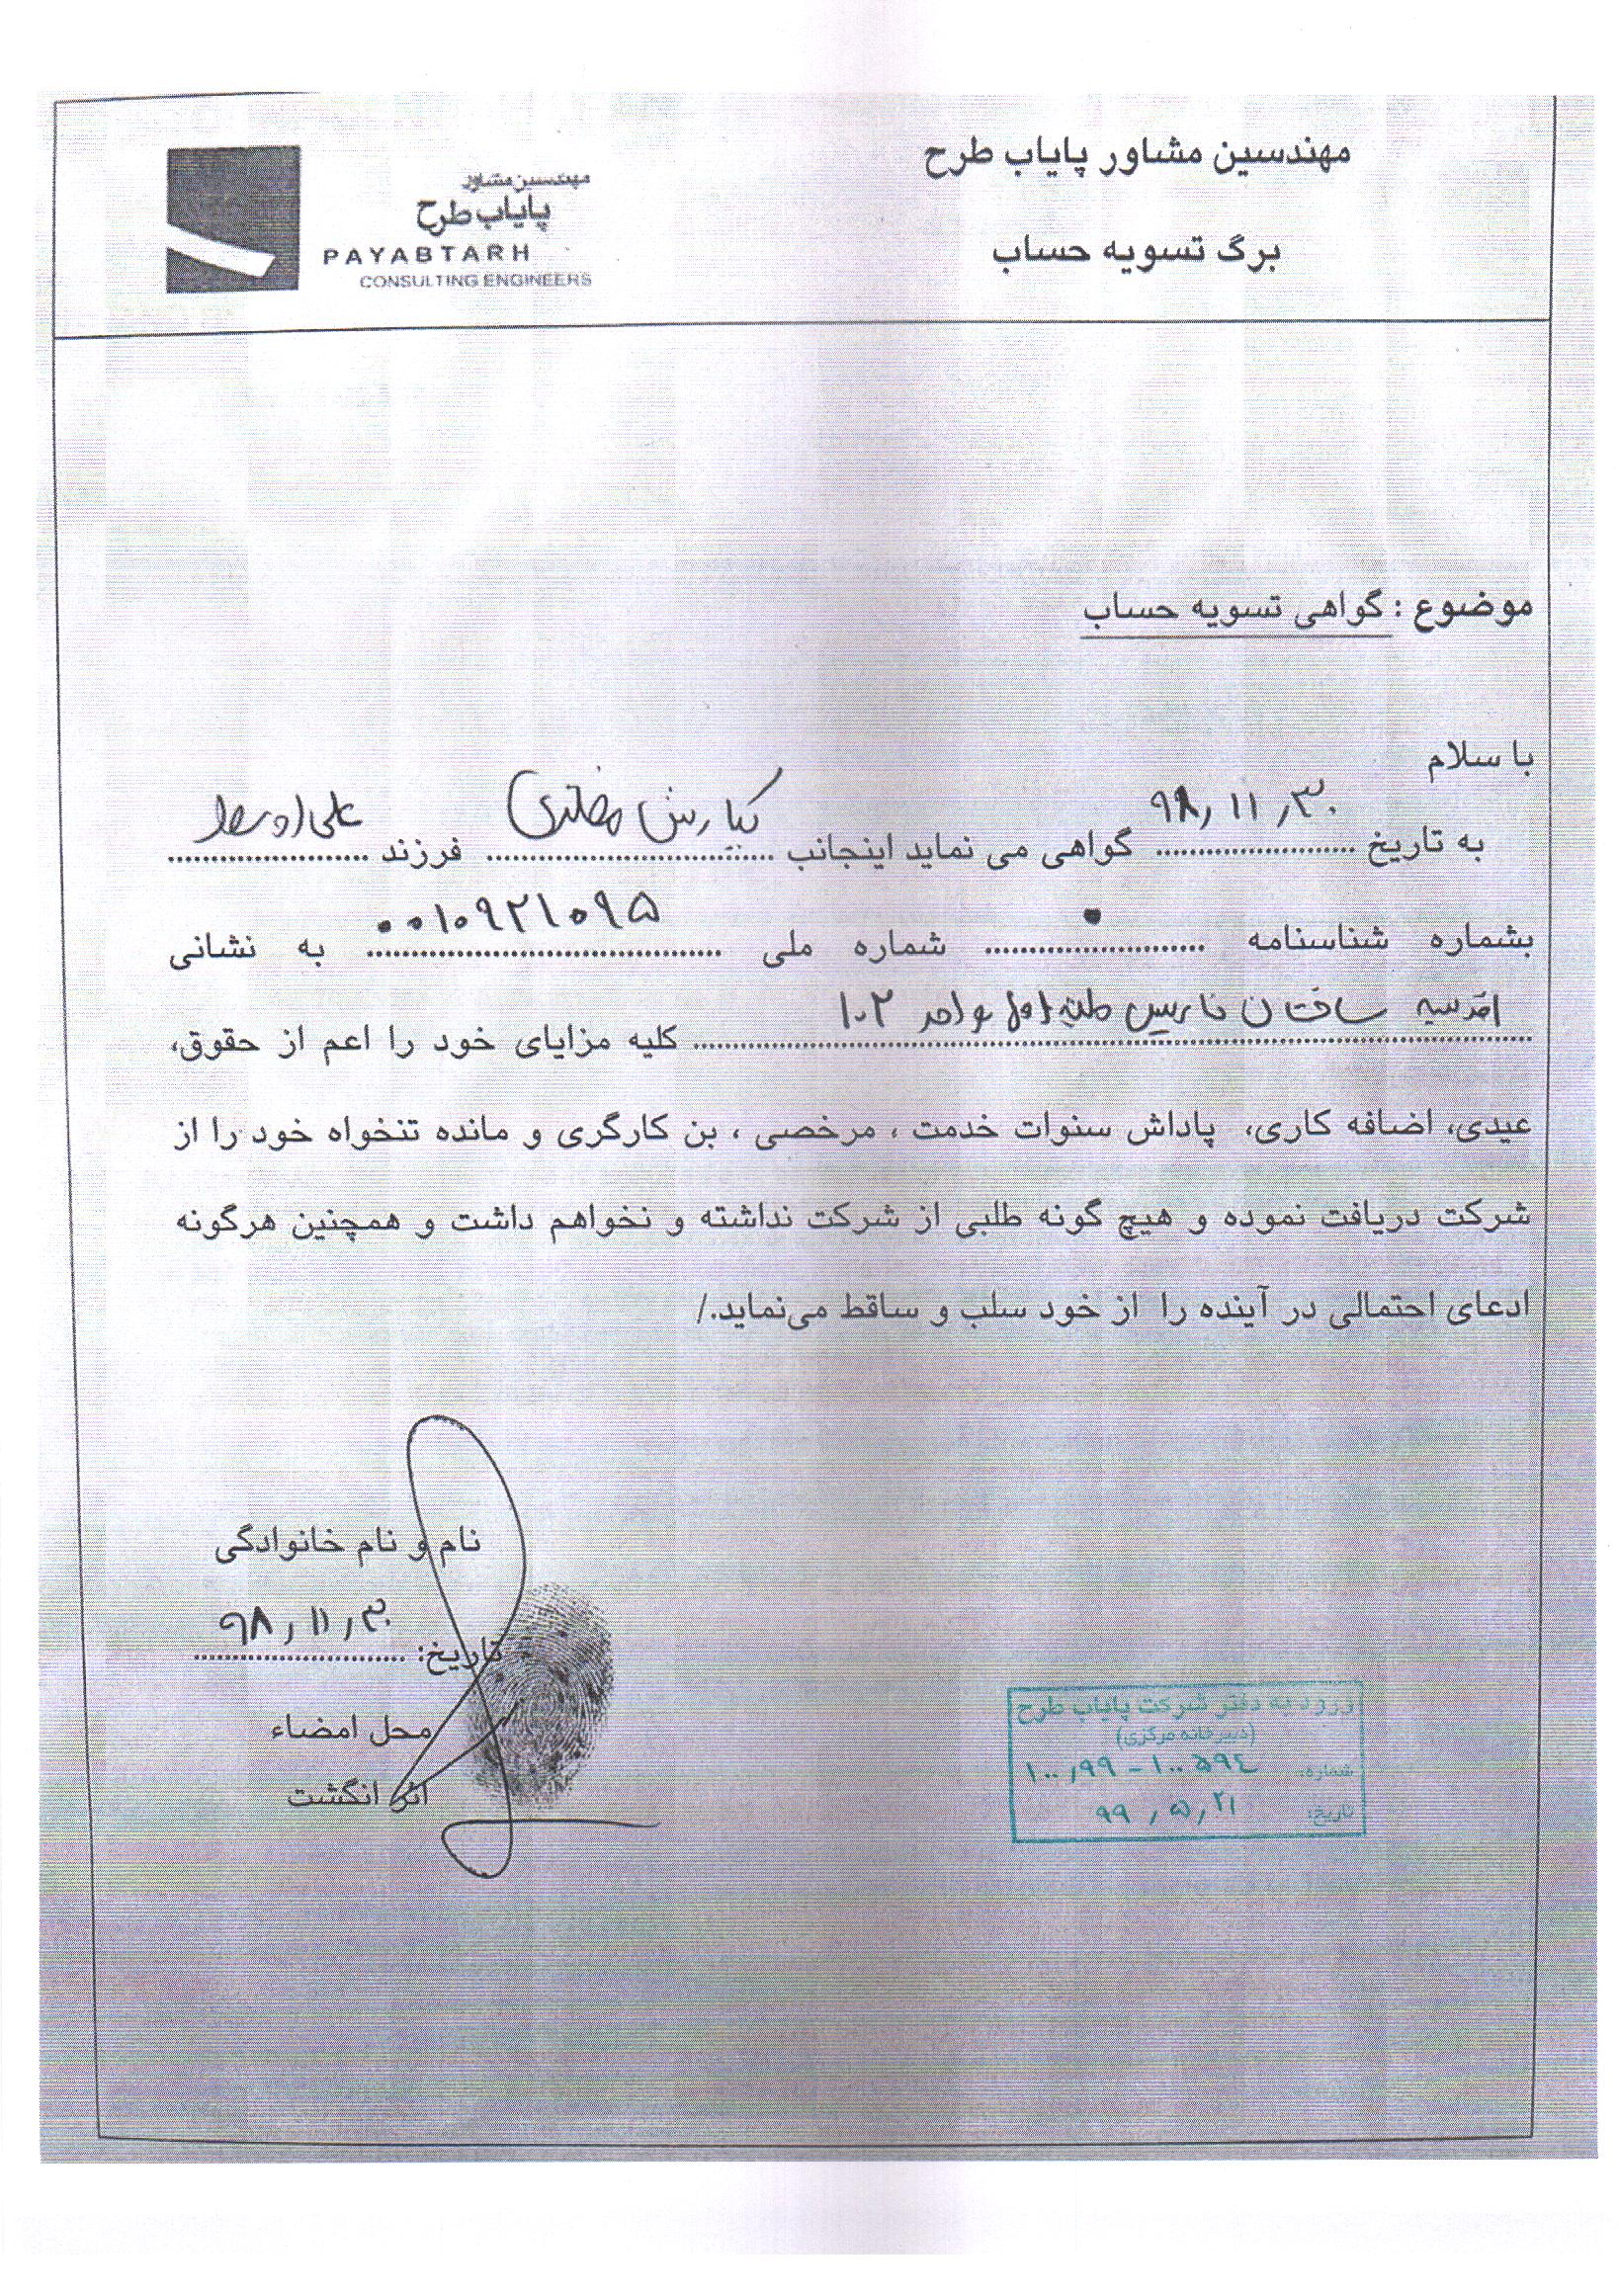 مهندسین مشاور پایاب طرح
برگ تسویه حساب
مهندسین مشاور
پایاب طرح
PAYABTARH
CONSULTING ENGINEERS
موضوع : گواهی تسویه حساب
با سلام
به تاریخ ۹۸٫۱۱٫۳۰ گواهی می نماید اینجانب کیارش فرزند علی
بشماره شناسنامه ۰ شماره ملی ۰۰۱۰۹۲۱۰۹۵ به نشانی
اقدسیه ساختمان فارسی طبقه اول واحد ۱۰۲ کلیه مزایای خود را اعم از حقوق،
عیدی، اضافه کاری، پاداش سنوات خدمت ، مرخصی ، بن کارگری و مانده تنخواه خود را از
شرکت دریافت نموده و هیچ گونه طلبی از شرکت نداشته و نخواهم داشت و همچنین هرگونه
ادعای احتمالی در آینده را از خود سلب و ساقط می‌نماید./
نام و نام خانوادگی
تاریخ: ۹۸٫۱۱٫۳۰
محل امضاء
اثر انگشت
ورود به دفتر شرکت پایاب طرح
(دبیرخانه مرکزی)
شماره: ۱۰۰٫۹۹-۱۰۰۵۹٤
تاریخ: ۹۹٫۵٫۲۱